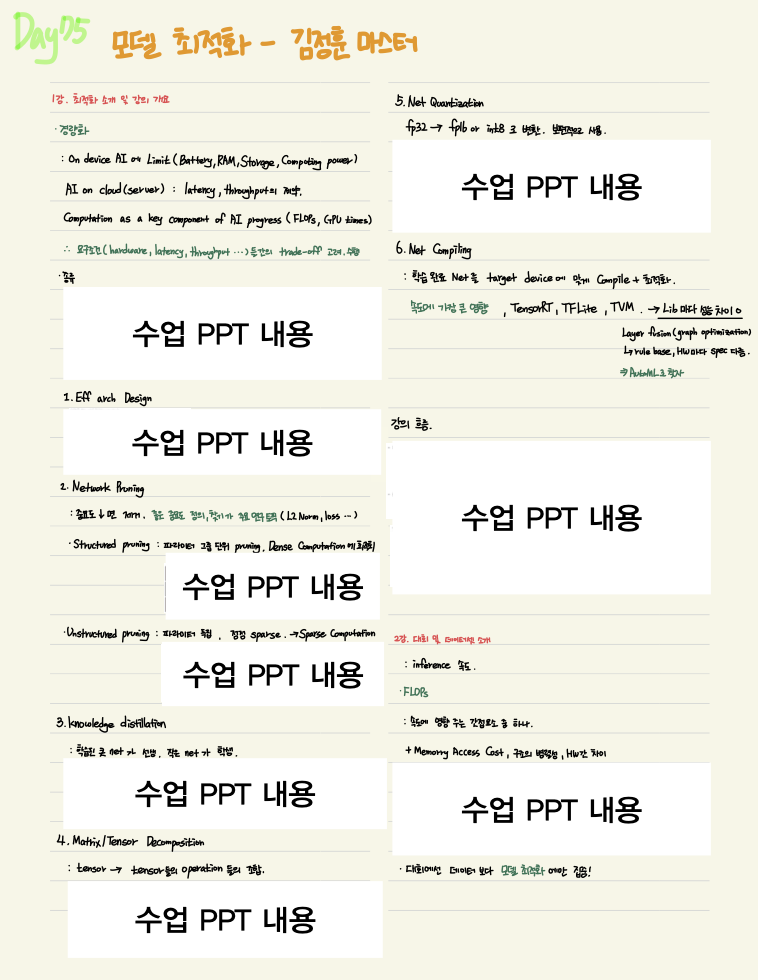 Day75
모델 최적화 - 김정훈 마스터
1강. 최적화 소개 및 강의 개요
· 경량화
: On device AI에 Limit (Battery, RAM, Storage, Computing power)
AI on cloud(server) : latency, throughput의 제약.
Computation as a key component of AI progress (FLOPs, GPU times)
∴ 요구조건(hardware, latency, throughput ...)들간의 trade-off 고려, 수행
· 종류
수업 PPT 내용
1. Eff arch Design
수업 PPT 내용
2. Network Pruning
: 중요도 ↓ 면 제거. 좋은 중요도 정의, 찾기가 주요 연구 토픽 (L2 Norm, loss ...)
· Structured pruning : 파라미터 그룹 단위 pruning, Dense Computation에 최적화
수업 PPT 내용
· Unstructured pruning : 파라미터 독립, 점점 sparse. → Sparse Computation
수업 PPT 내용
3. knowledge distillation
: 학습된 큰 net가 선생, 작은 net가 학생.
수업 PPT 내용
4. Matrix/Tensor Decomposition
: tensor → tensor들의 operation들의 조합.
수업 PPT 내용
5. Net Quantization
fp32 → fp16 or int8로 변환. 보편적으로 사용.
수업 PPT 내용
6. Net Compiling
: 학습 완료 Net을 target device에 맞게 Compile + 최적화.
속도에 가장 큰 영향, TensorRT, TFLite, TVM. → Lib마다 성능 차이 O
Layer fusion (graph optimization)
↳ rule base, HW마다 spec 다름.
⇒ AutoML로 찾자
강의 흐름.
수업 PPT 내용
2강. 대회 및 데이터셋 소개
: inference 속도.
· FLOPs
: 속도에 영향 주는 간접요소 중 하나.
+ Memory Access Cost, 구조의 병렬성, HW간 차이
수업 PPT 내용
· 대회에선 데이터 보다 모델 최적화에만 집중!